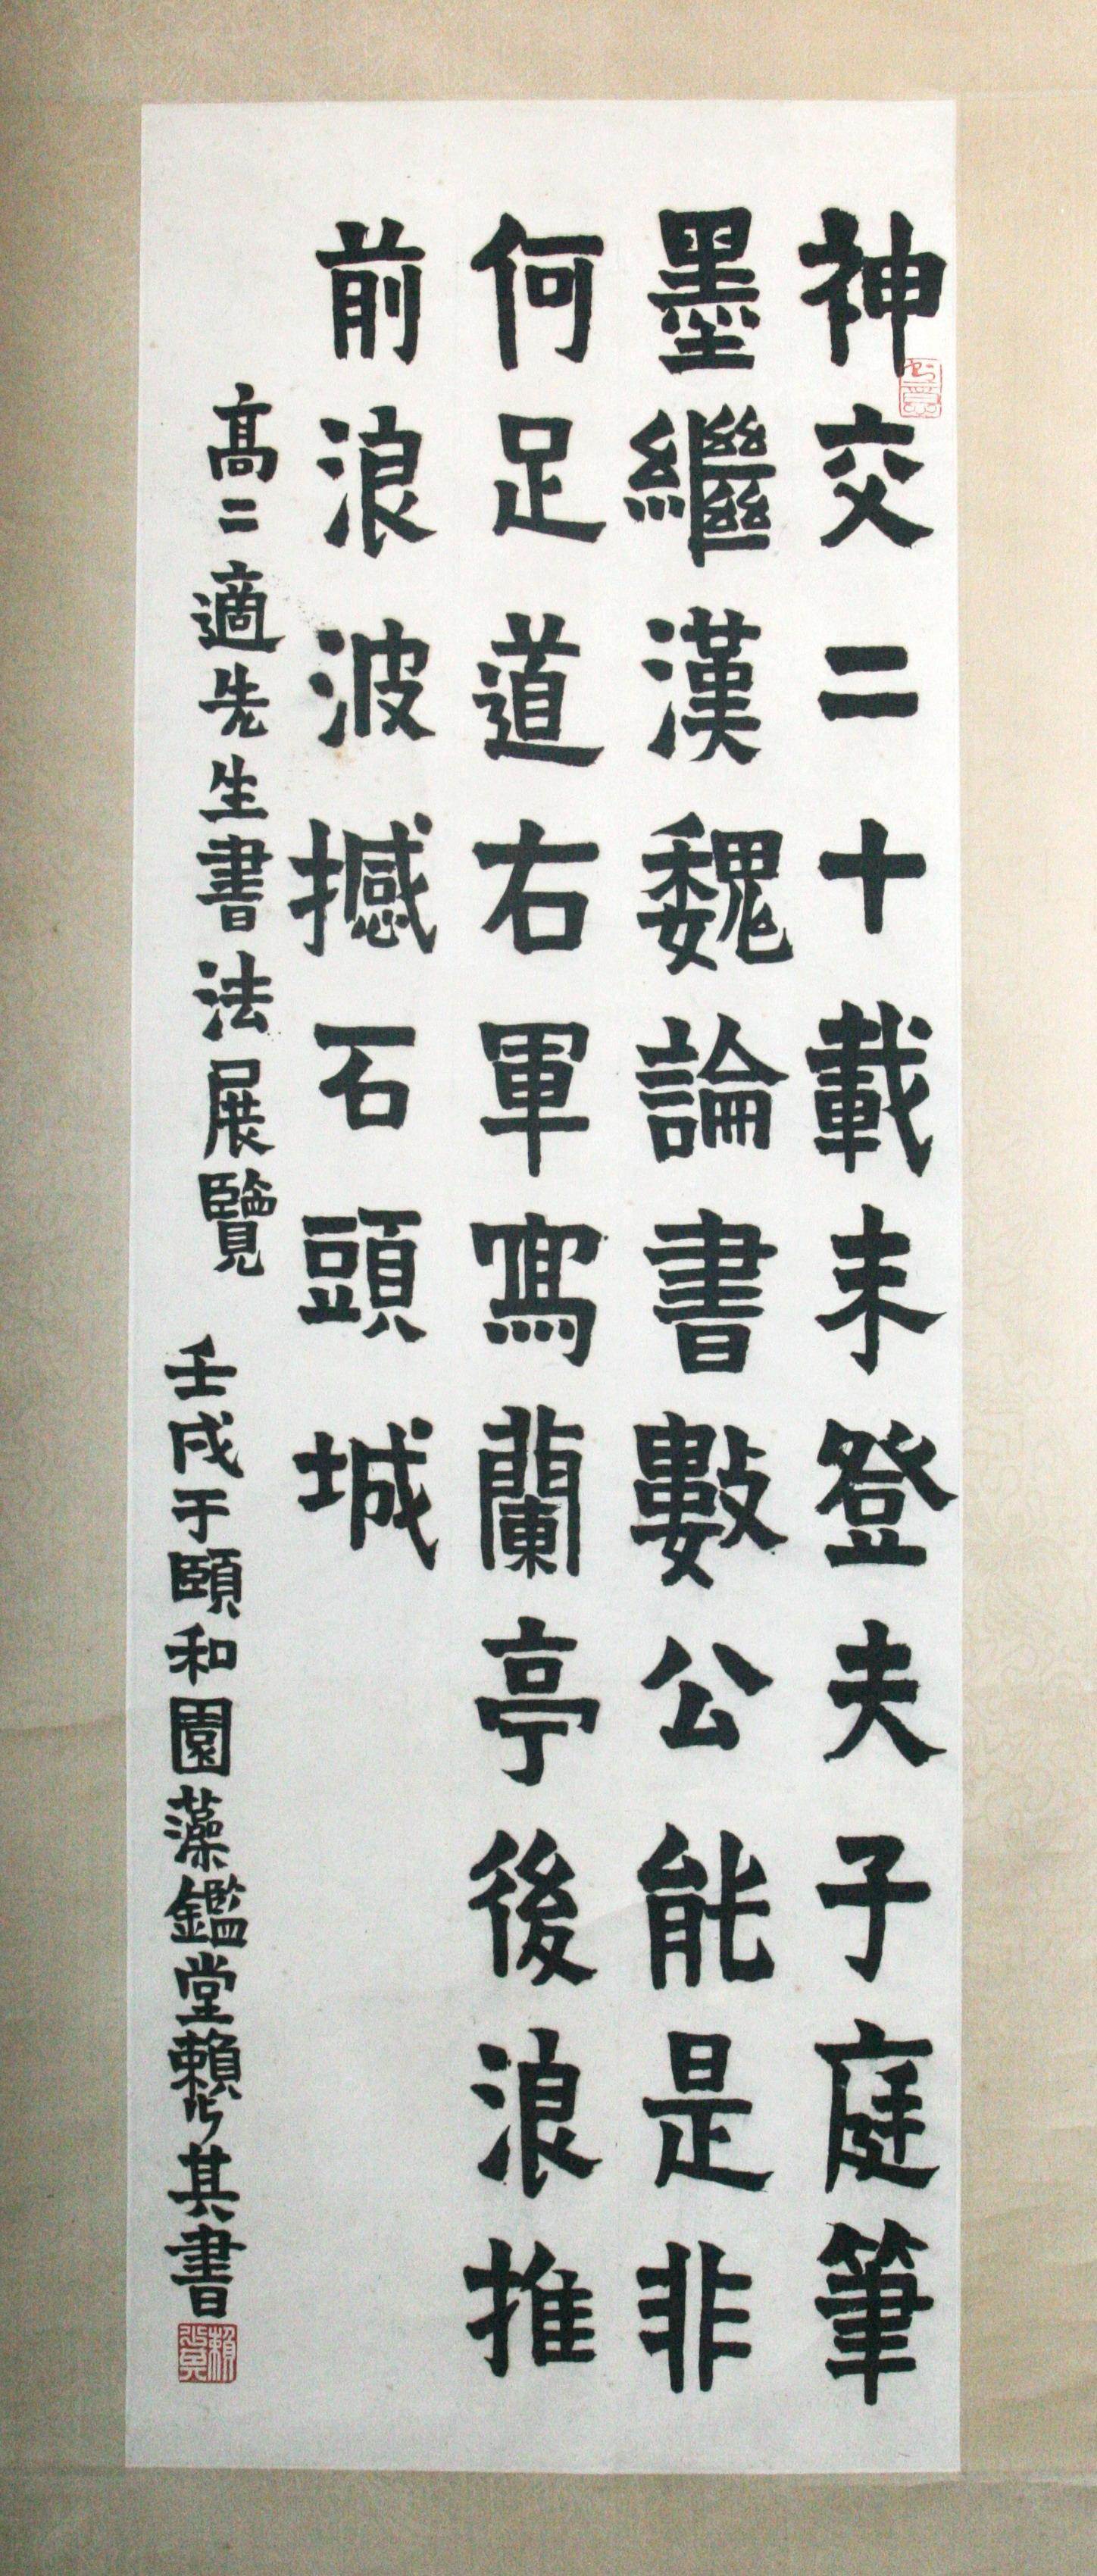 神交二十載未登夫子庭筆
墨繼漢魏論書數公能是非
何足道右軍寫蘭亭後浪推
前浪波撼石頭城
高二適先生書法展覽
壬戌于頤和園藻鑑堂賴少其書